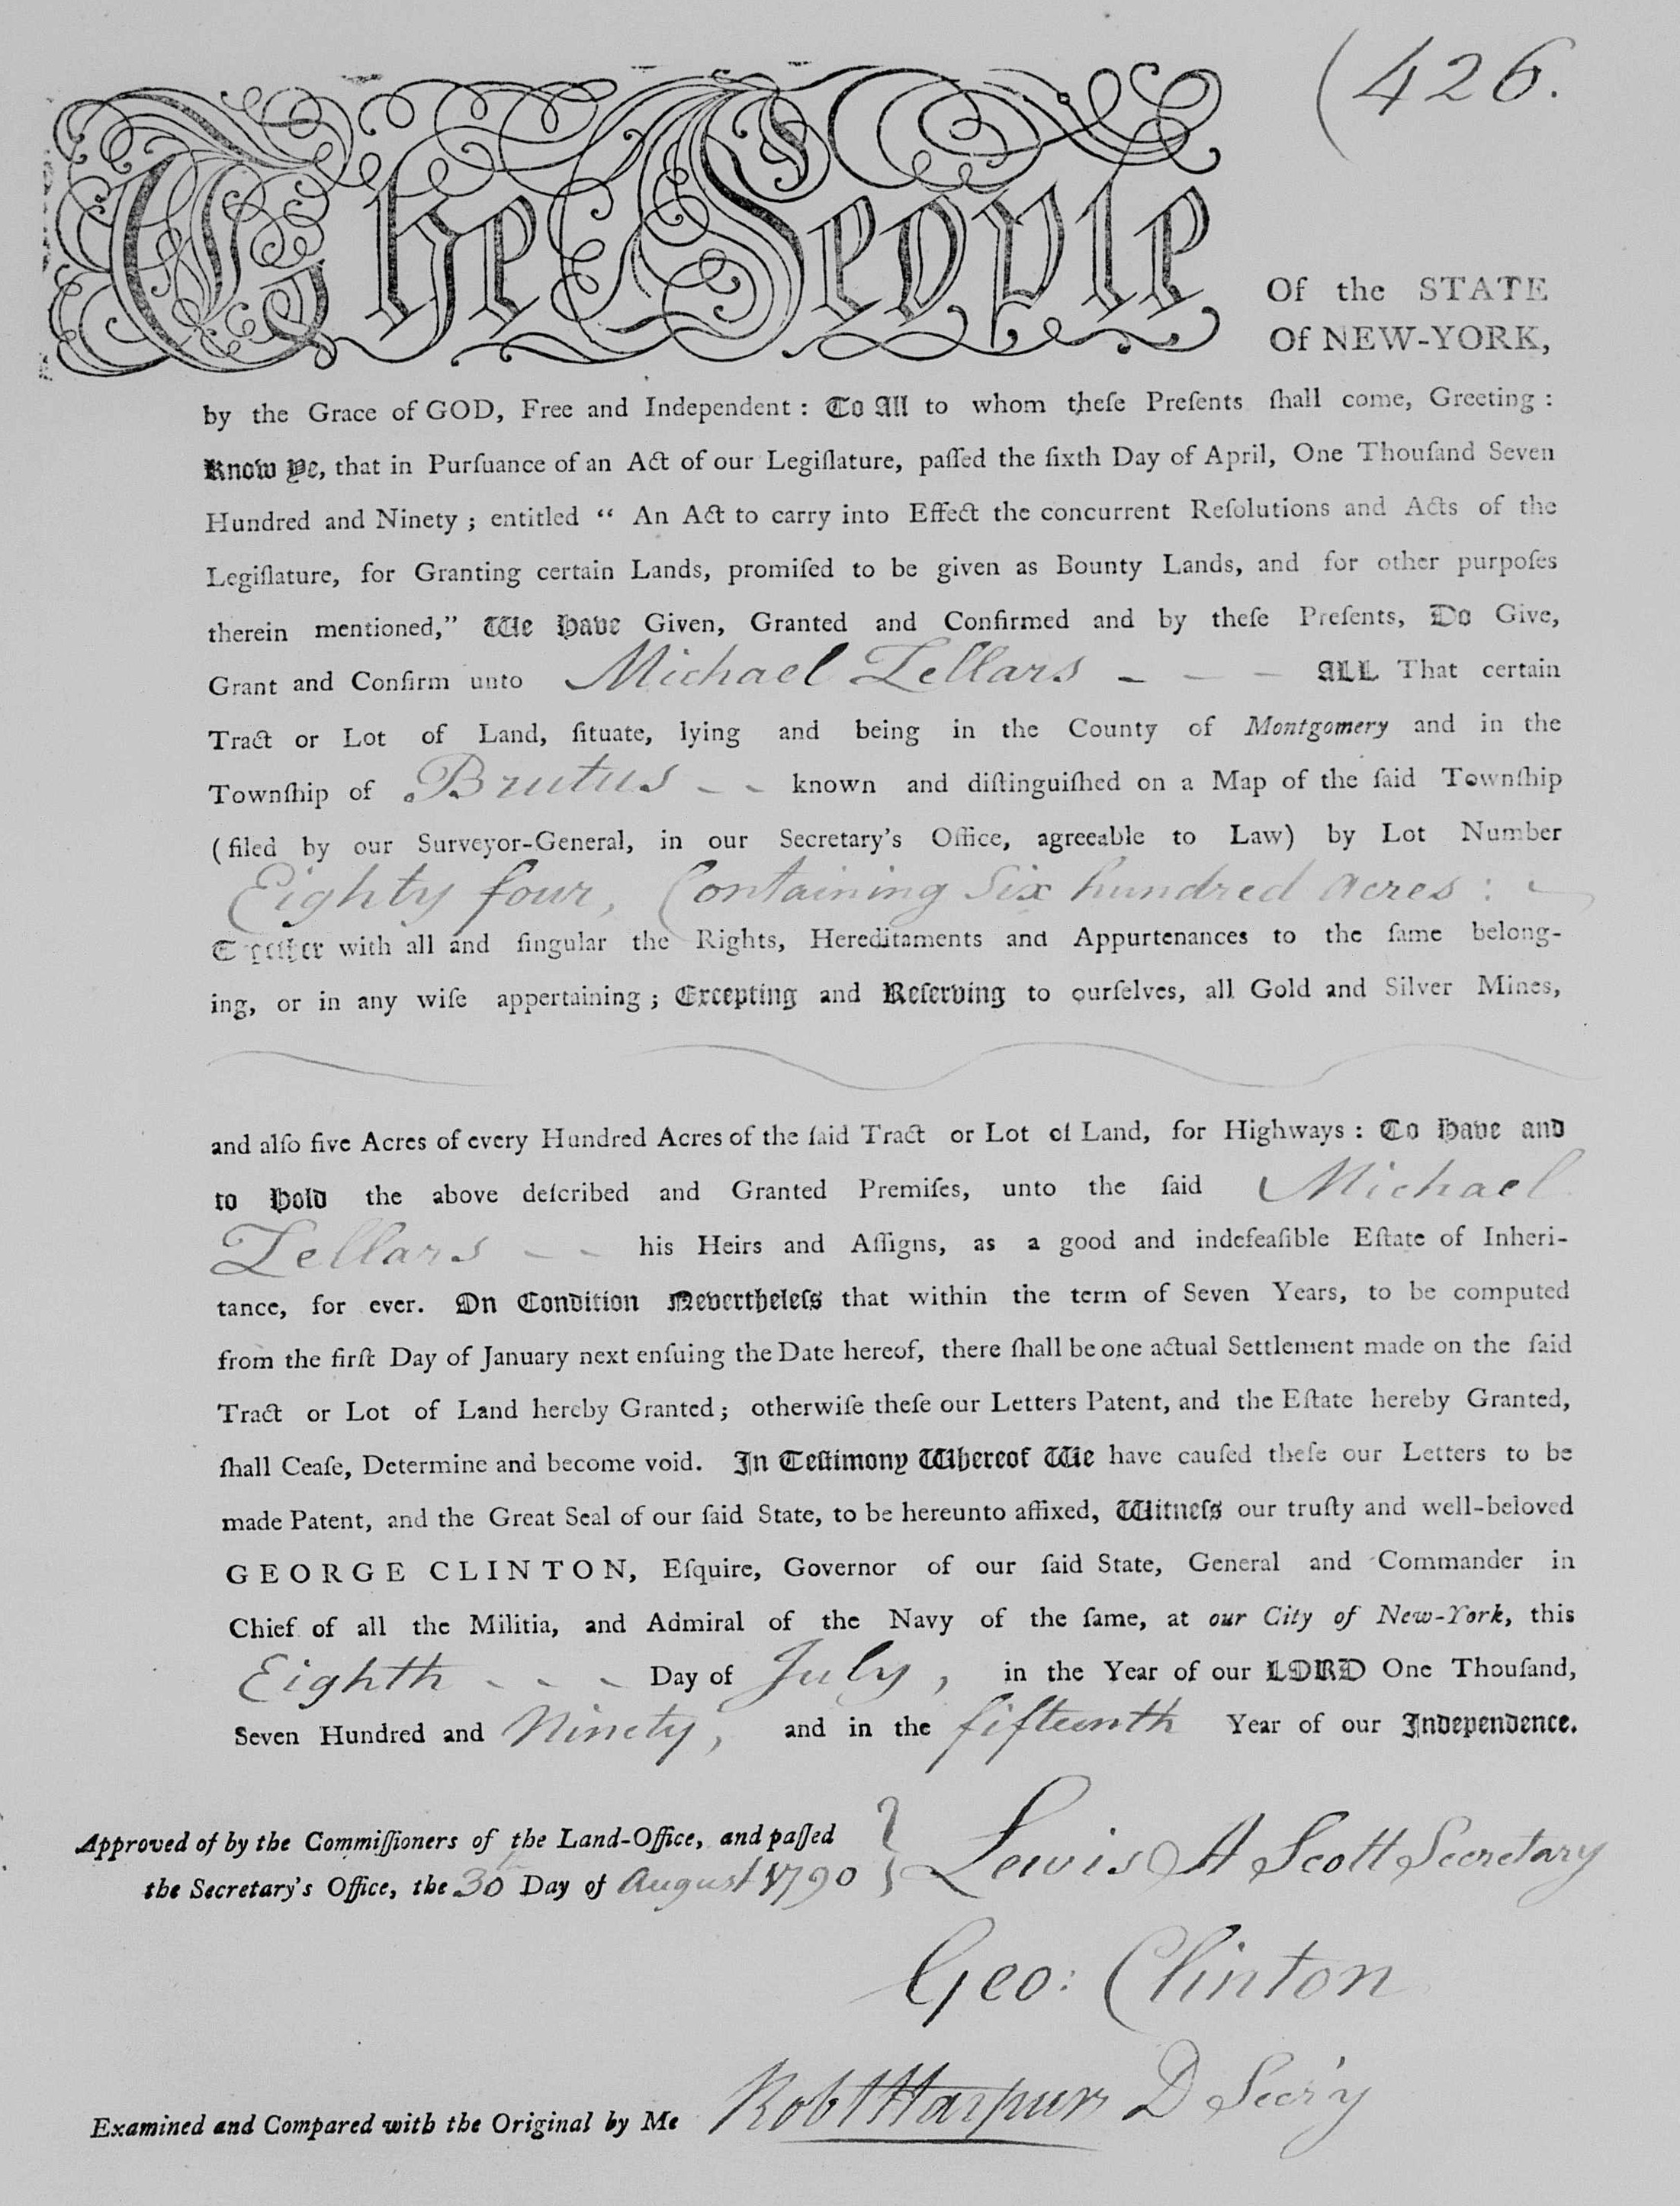 (426.
The People
Of the STATE
Of NEW-YORK,
by the Grace of GOD, Free and Independent : To All to whom theſe Preſents ſhall come, Greeting :
Know Ye, that in Purſuance of an Act of our Legiſlature, paſſed the ſixth Day of April, One Thouſand Seven
Hundred and Ninety ; entitled “ An Act to carry into Effect the concurrent Reſolutions and Acts of the
Legiſlature, for Granting certain Lands, promiſed to be given as Bounty Lands, and for other purpoſes
therein mentioned,” We Have Given, Granted and Confirmed and by theſe Preſents, Do Give,
Grant and Confirm unto Michael Zellars - - - ALL That certain
Tract or Lot of Land, ſituate, lying and being in the County of Montgomery and in the
Townſhip of Brutus - - known and diſtinguiſhed on a Map of the ſaid Townſhip
(filed by our Surveyor-General, in our Secretary’s Office, agreeable to Law) by Lot Number
Eighty four, Containing Six hundred acres : -
Together with all and ſingular the Rights, Hereditaments and Appurtenances to the ſame belong-
ing, or in any wiſe appertaining ; Excepting and Reſerving to ourſelves, all Gold and Silver Mines,
and alſo five Acres of every Hundred Acres of the ſaid Tract or Lot of Land, for Highways : To Have and
to Hold the above deſcribed and Granted Premiſes, unto the ſaid Michael
Zellars - - his Heirs and Aſſigns, as a good and indefeaſible Eſtate of Inheri-
tance, for ever. On Condition Nevertheleſs that within the term of Seven Years, to be computed
from the firſt Day of January next enſuing the Date hereof, there ſhall be one actual Settlement made on the ſaid
Tract or Lot of Land hereby Granted ; otherwiſe theſe our Letters Patent, and the Eſtate hereby Granted,
ſhall Ceaſe, Determine and become void. In Teſtimony Whereof We have cauſed theſe our Letters to be
made Patent, and the Great Seal of our ſaid State, to be hereunto affixed, Witneſs our truſty and well-beloved
GEORGE CLINTON, Eſquire, Governor of our ſaid State, General and Commander in
Chief of all the Militia, and Admiral of the Navy of the ſame, at our City of New-York, this
Eighth - - - Day of July, in the Year of our LORD One Thouſand,
Seven Hundred and Ninety, and in the fifteenth Year of our Independence.
Approved of by the Commiſſioners of the Land-Office, and paſſed
the Secretary’s Office, the 30th Day of August 1790 } Lewis A Scott Secretary
Geo: Clinton
Examined and Compared with the Original by Me Robt Harpur D Secr'y